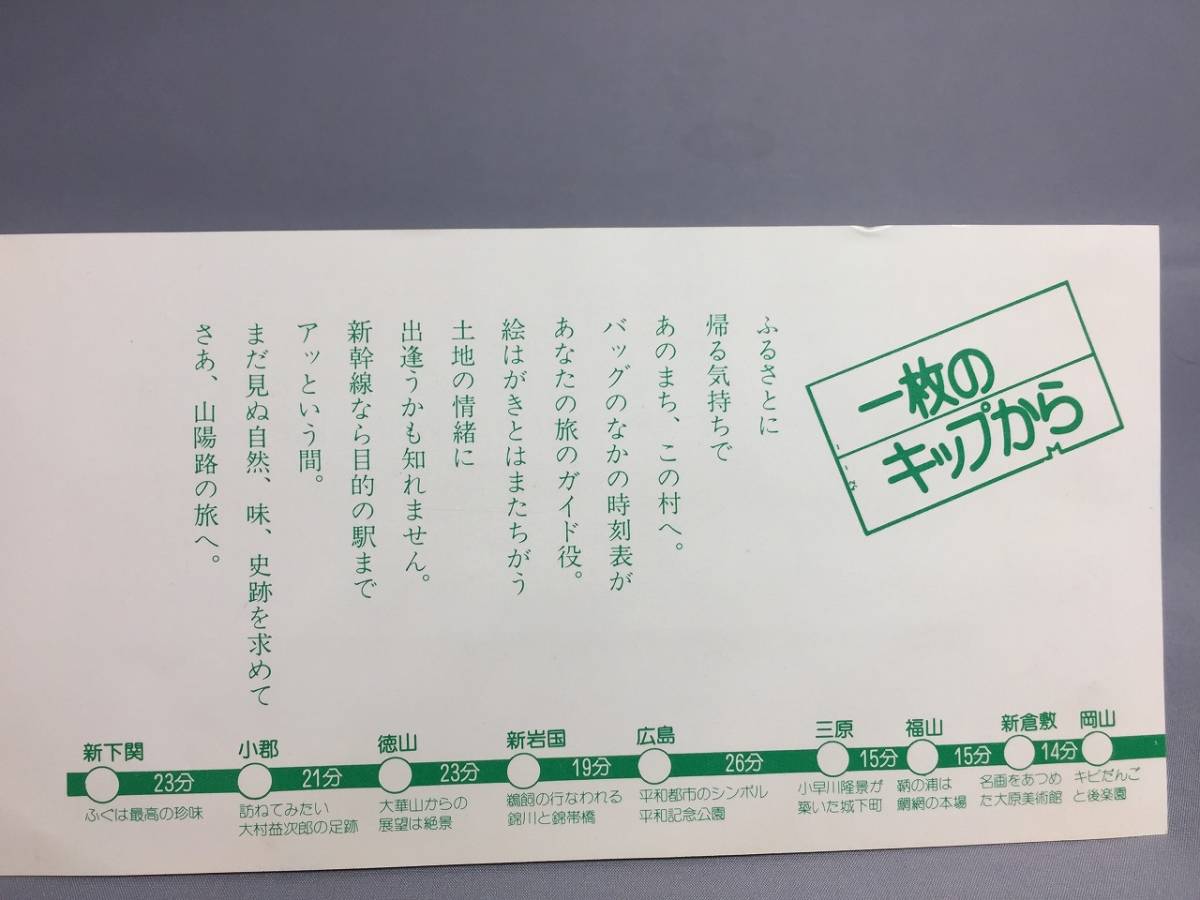 一枚の
キップから
ふるさとに
帰る気持ちで
あのまち、この村へ。
バッグのなかの時刻表が
あなたの旅のガイド役。
絵はがきとはまたちがう
土地の情緒に
出逢うかも知れません。
新幹線なら目的の駅まで
アッという間。
まだ見ぬ自然、味、史跡を求めて
さあ、山陽路の旅へ。
新下関
23分
小郡
21分
徳山
23分
新岩国
19分
広島
26分
三原
15分
福山
15分
新倉敷
14分
岡山
ふぐは最高の珍味
訪ねてみたい
大村益次郎の足跡
大華山からの
展望は絶景
鵜飼の行なわれる
錦川と錦帯橋
平和都市のシンボル
平和記念公園
小早川隆景が
築いた城下町
鞆の浦は
鯛網の本場
名画をあつめ
た大原美術館
キビだんご
と後楽園